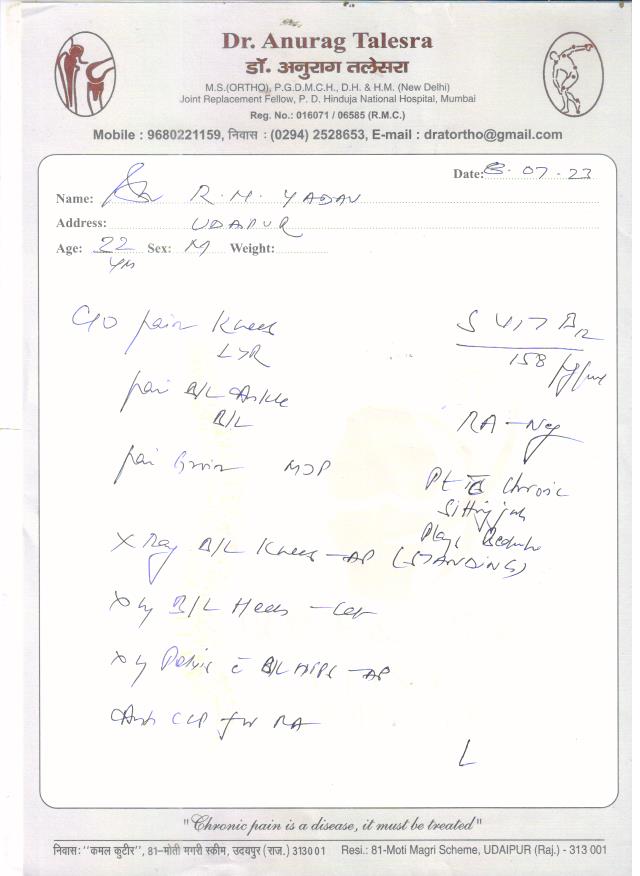 Dr. Anurag Talesra
डॉ. अनुराग तलेसरा
M.S.(ORTHO), P.G.D.M.C.H., D.H. & H.M. (New Delhi)
Joint Replacement Fellow, P. D. Hinduja National Hospital, Mumbai
Reg. No.: 016071 / 06585 (R.M.C.)
Mobile : 9680221159, निवास : (0294) 2528653, E-mail : dratortho@gmail.com
Date: 8.07.23
Name: R.M. YADAV
Address: UDAIPUR
Age: 22 Sex: M Weight:
C/O pain Knees
L>R
S VIT B12
158
pain B/L Ankle
B/L
RA - Neg
pain Groin
Pt Chronic
Sitting job
Plays
X Ray B/L Knees - AP (STANDING)
X Ry B/L Heels - Lat
X Ry Pelvis c B/L HIPS - AP
Anti CCP for RA
"Chronic pain is a disease, it must be treated"
निवास: "कमल कुटीर", 81-मोती मगरी स्कीम, उदयपुर (राज.) 313001 Resi.: 81-Moti Magri Scheme, UDAIPUR (Raj.) - 313 001